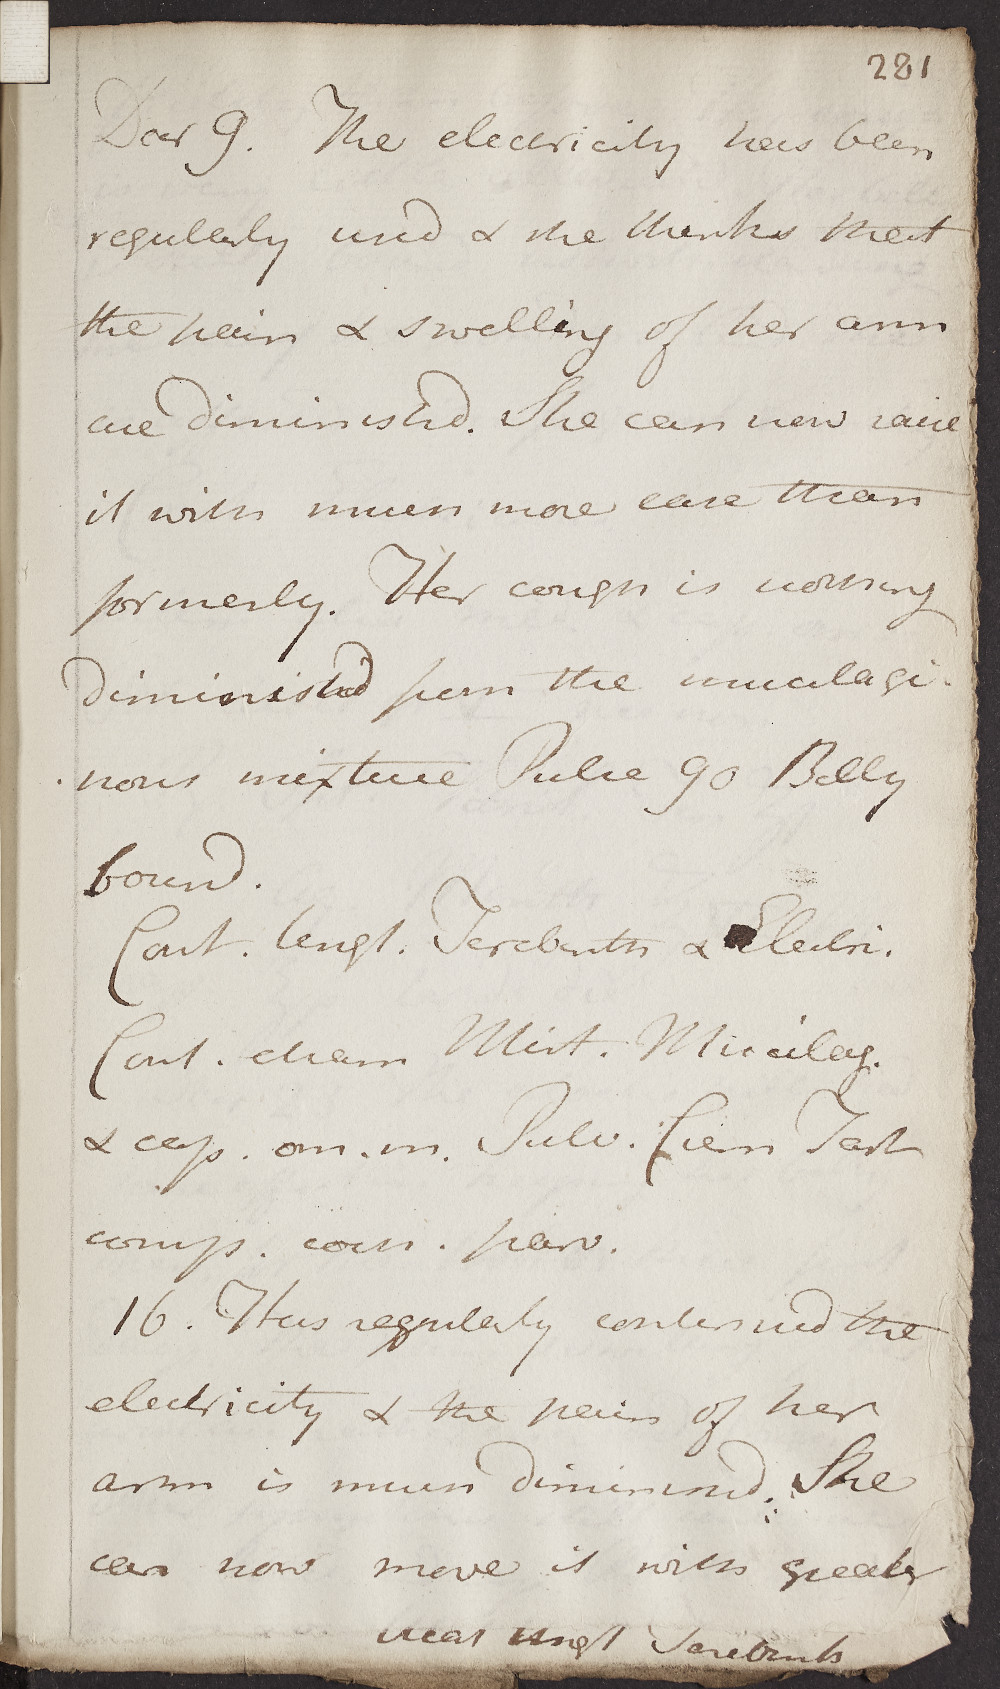 281
Decr 9. The electricity has been
regularly used & she thinks that
the pain & swelling of her arm
are diminishd. She can now raise
it with much more ease than
formerly. Her cough is nothing
diminishd from the mucilagi-
nous mixture Pulse 90 Belly
bound.
Cont. Ungt. Terebinth & Electri.
Cont. etiam Mist. Mucilag.
& cap. om. m. Pulv. Crem Tart
comp. coch. parv.
16. Has regularly continued the
electricity & the pain of her
arm is much diminished. She
can now move it with greater
Ungt Terebinth